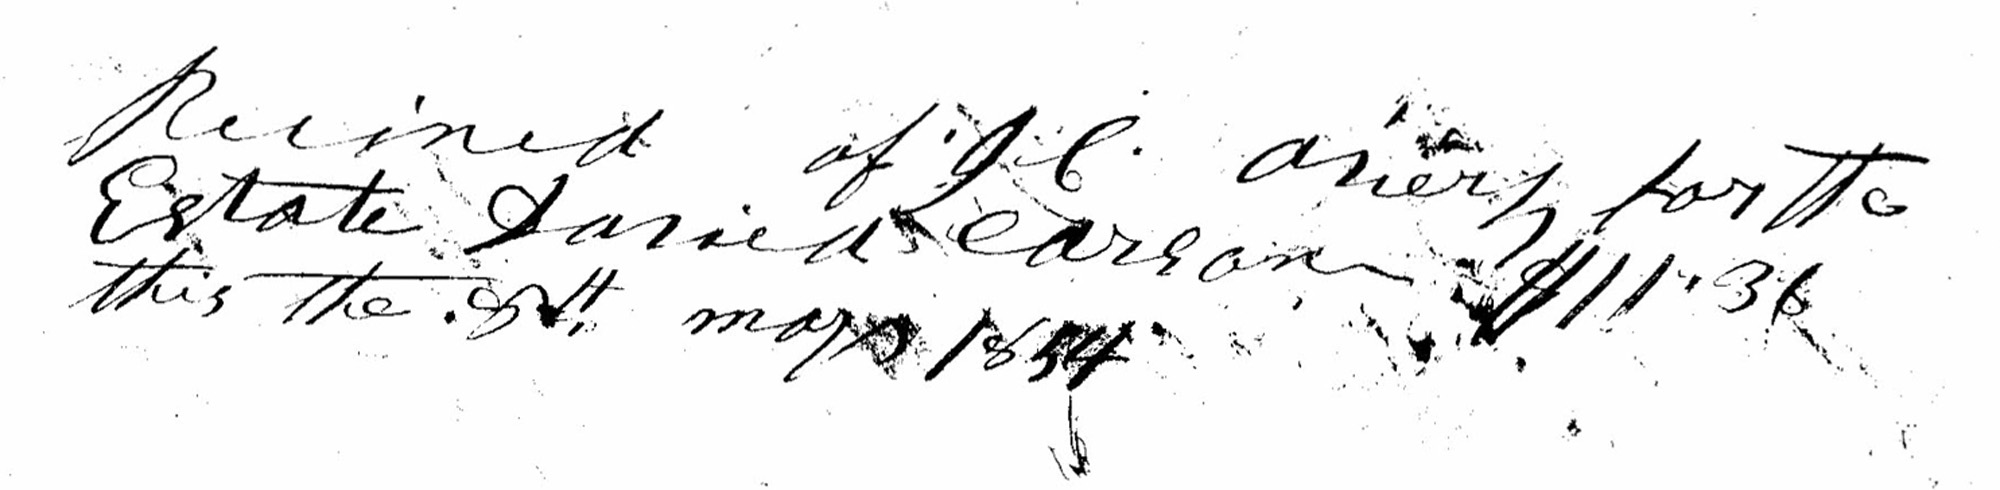 Received of J. C. Avery for the
Estate David Carson $11.36
this the 8th may 1854